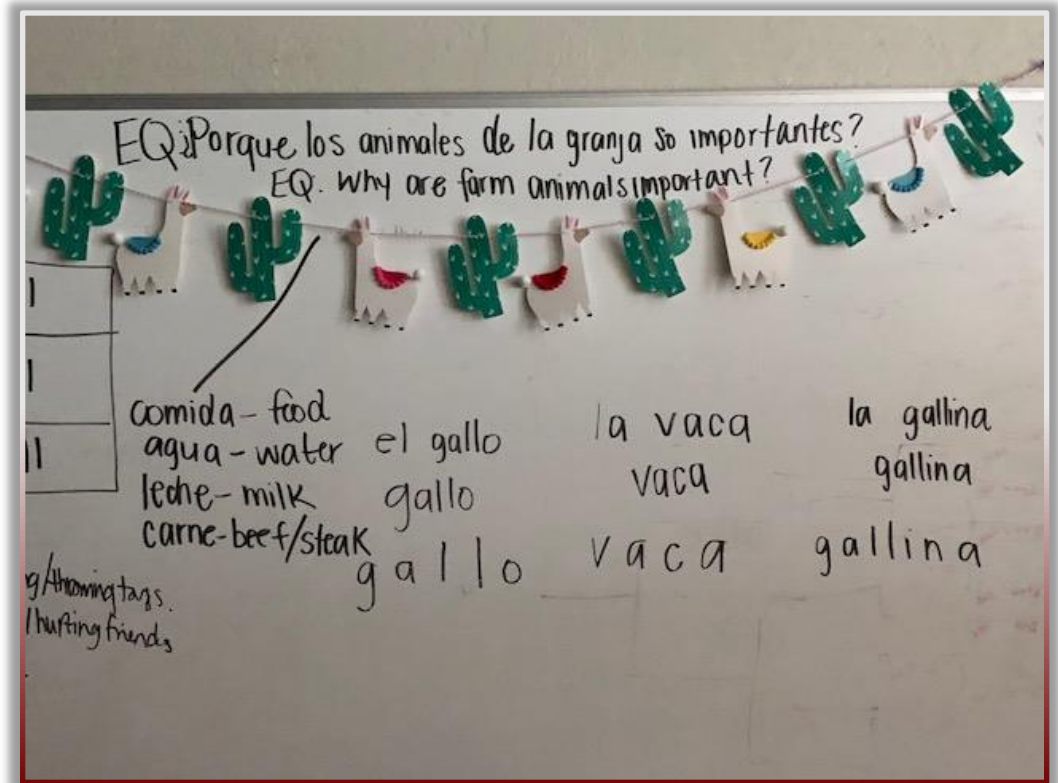 EQ¿Porque los animales de la granja so importantes?
EQ. Why are farm animals important?
comida - food
agua - water
leche - milk
carne-beef/steak
el gallo
gallo
gallo
la vaca
vaca
vaca
la gallina
gallina
gallina
hurting friends